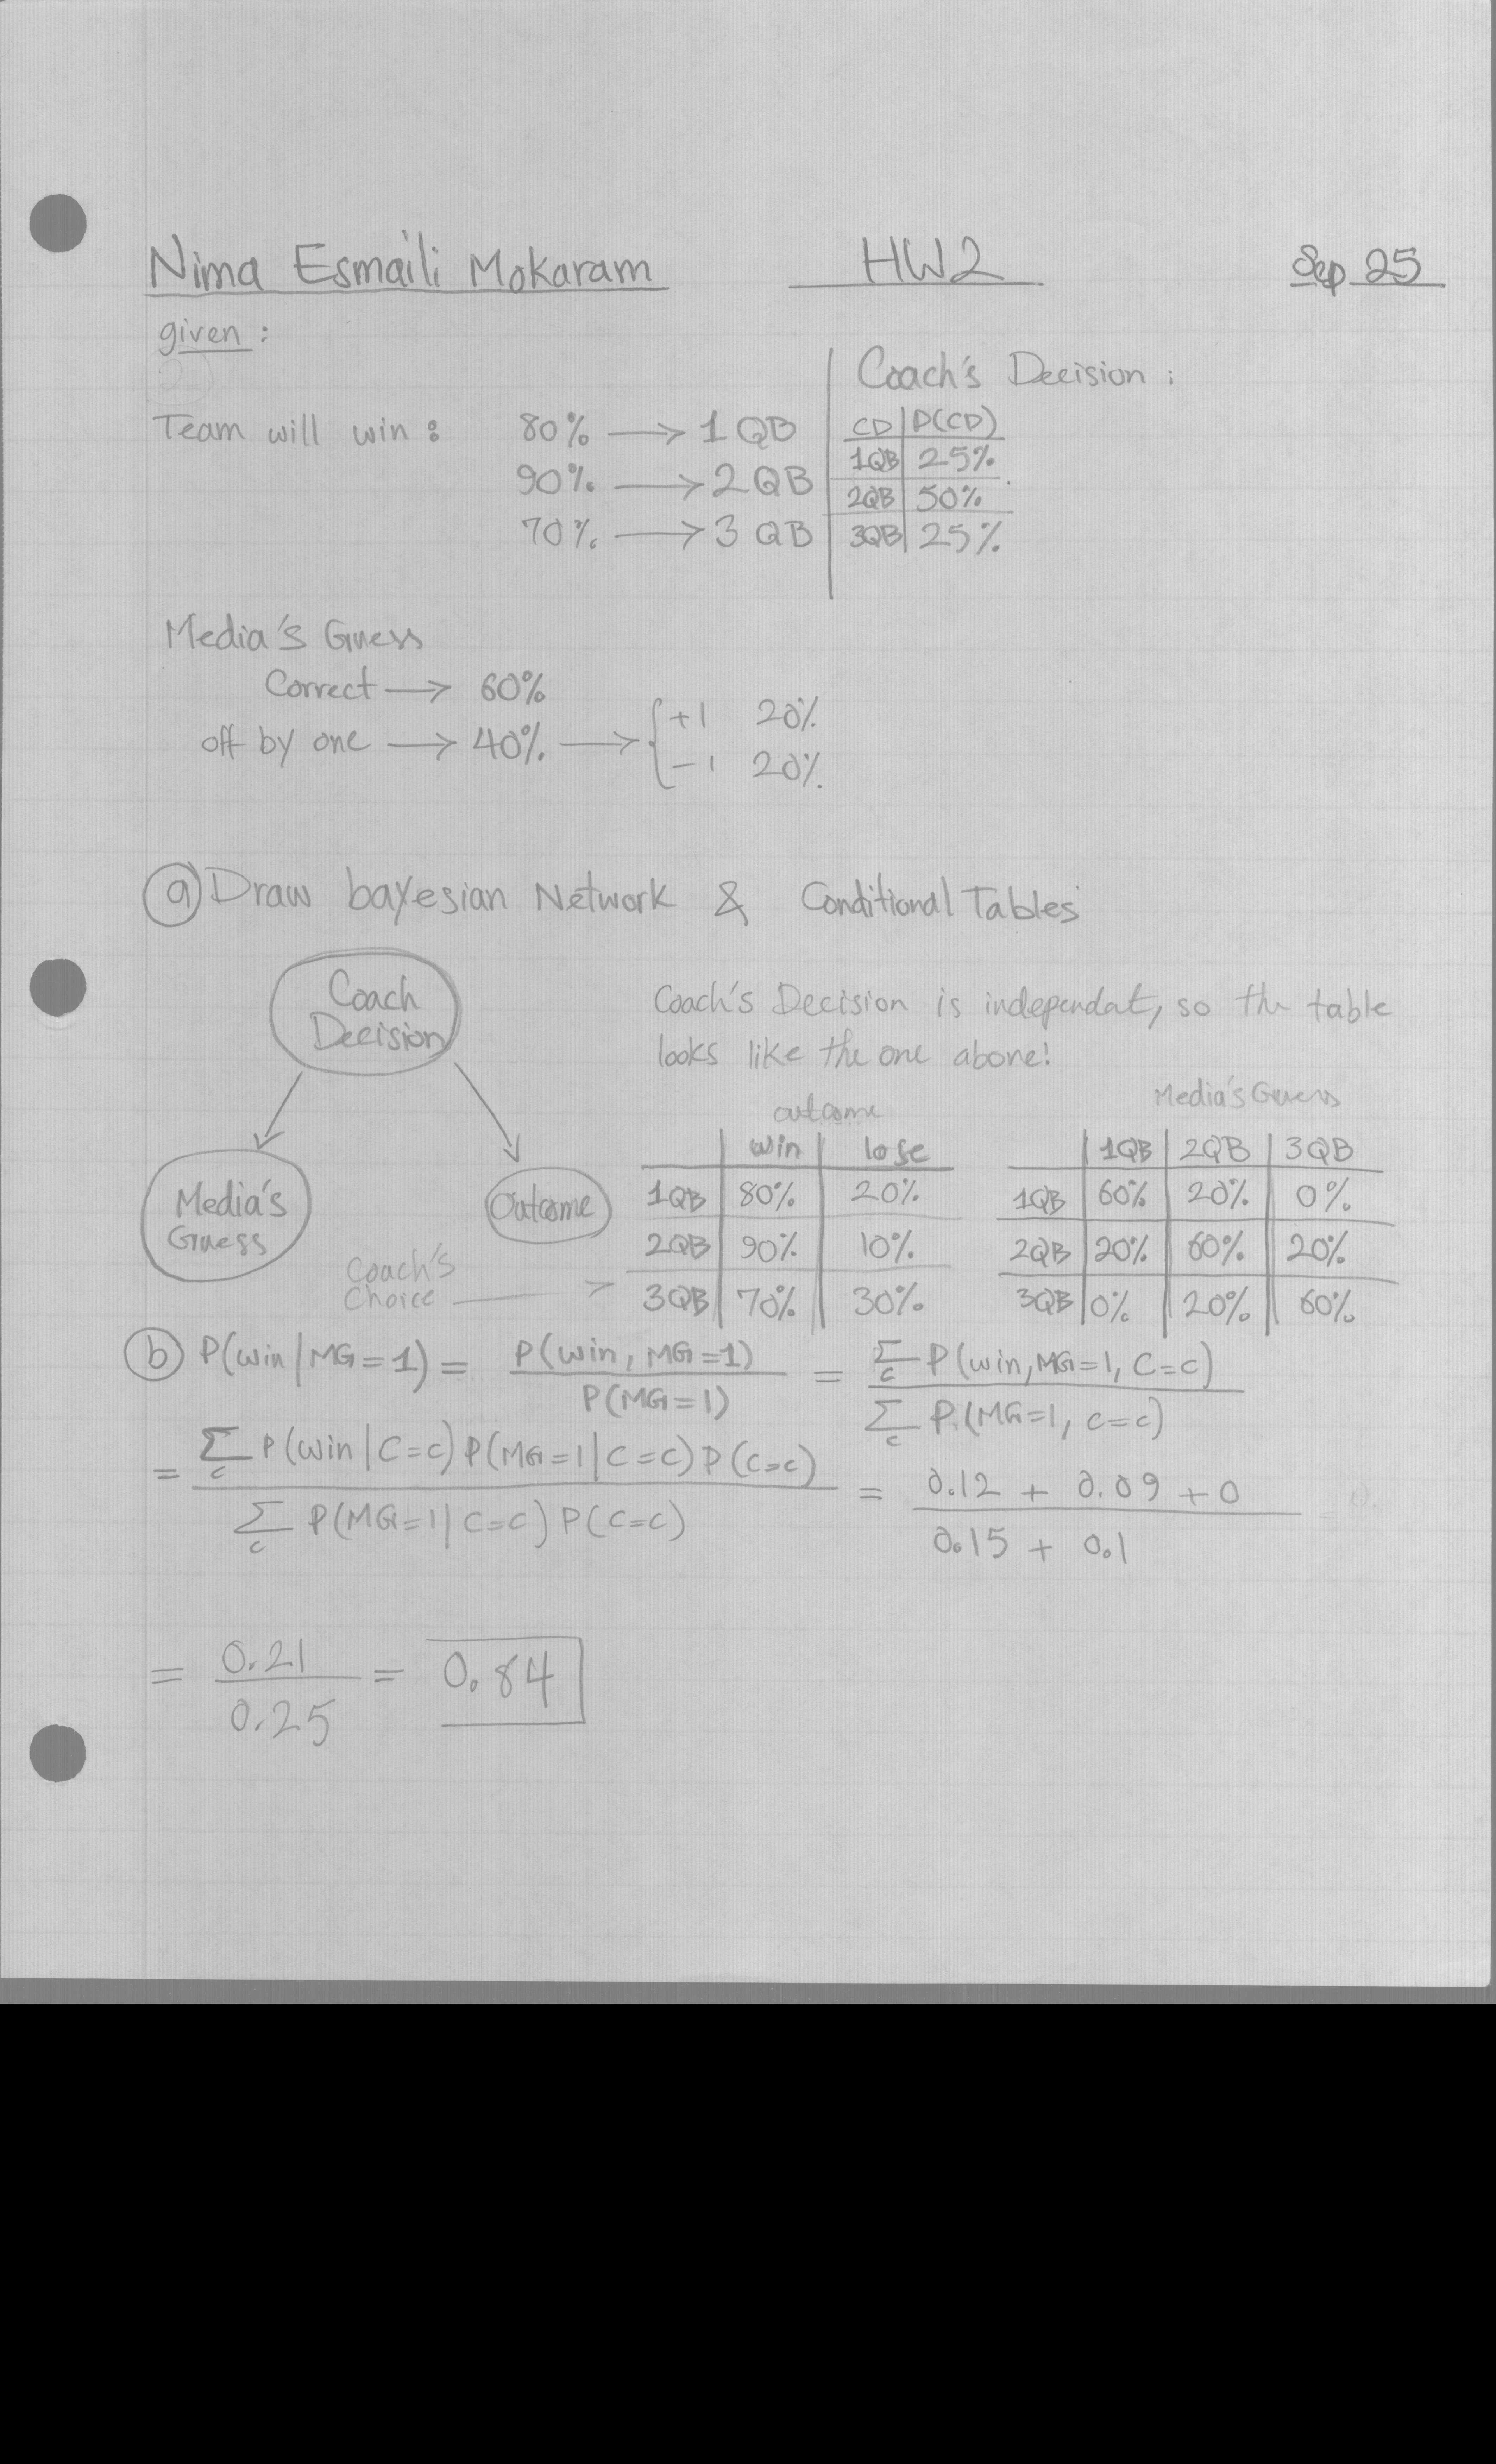 Nima Esmaili Mokaram HW2 Sep 25
given :
Coach's Decision :
Team will win : 80% → 1 QB
90% → 2 QB
70% → 3 QB
CD P(CD)
1QB 25%
2QB 50%
3QB 25%
Media's Guess
Correct → 60%
off by one → 40% → { +1 20%
-1 20%
a Draw bayesian Network & Conditional Tables
Coach Decision
Media's Guess
Outcome
Coach's Decision is independat, so the table
looks like the one above!
outcome
win lose
1QB 80% 20%
2QB 90% 10%
3QB 70% 30%
Coach's
Choice
Media's Guess
1QB 2QB 3QB
1QB 60% 20% 0%
2QB 20% 60% 20%
3QB 0% 20% 60%
b P(win | MG = 1) = P(win, MG=1) / P(MG=1) = Σc P(win, MG=1, C=c) / Σc P(MG=1, C=c)
= Σc P(win | C=c) P(MG=1 | C=c) P(C=c) / Σc P(MG=1 | C=c) P(C=c) = 0.12 + 0.09 + 0 / 0.15 + 0.1
= 0.21 / 0.25 = 0.84